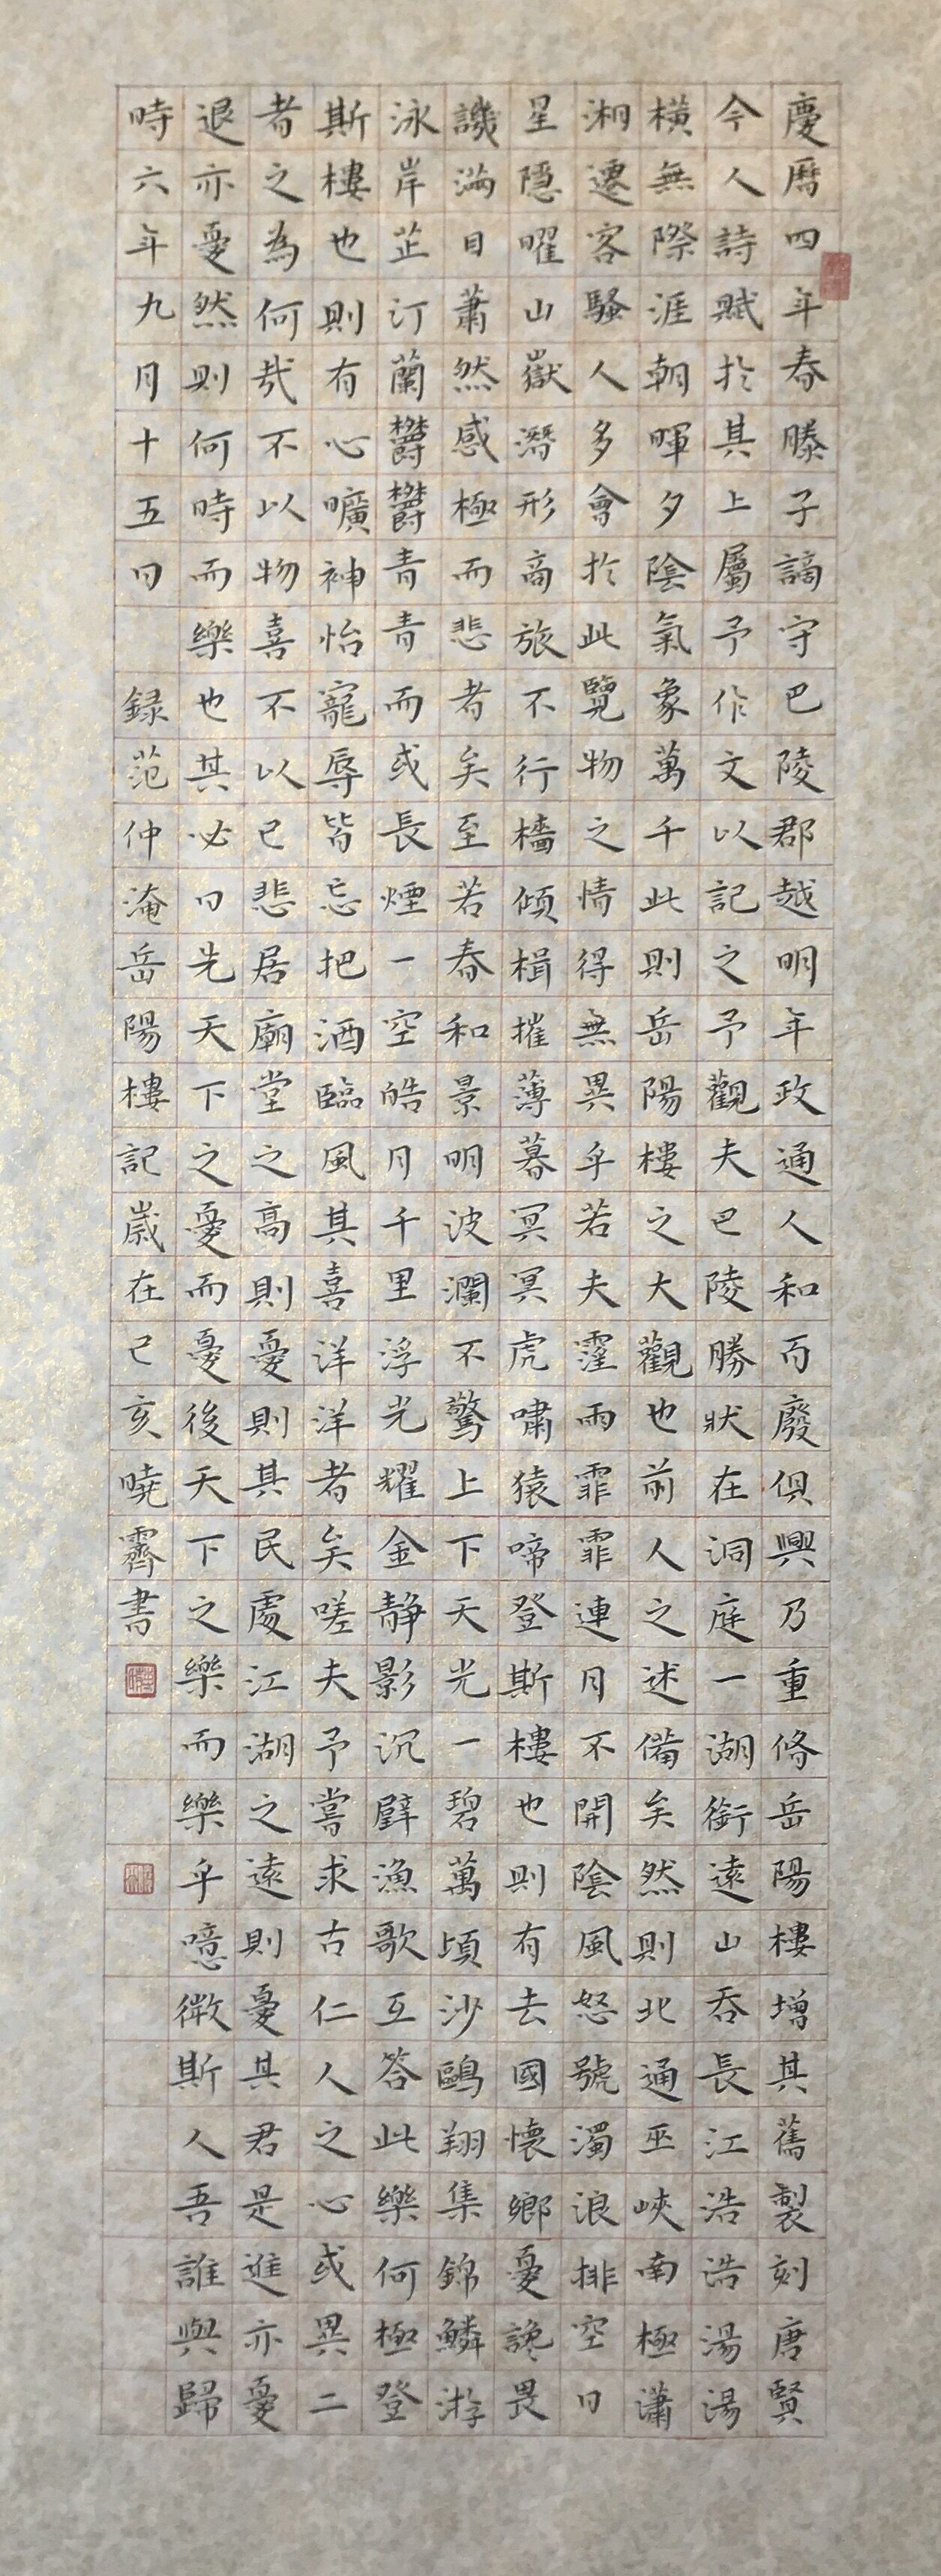 慶曆四年春滕子謫守巴陵郡越明年政通人和百廢俱興乃重脩岳陽樓增其舊製刻唐賢
今人詩賦於其上屬予作文以記之予觀夫巴陵勝狀在洞庭一湖銜遠山吞長江浩浩湯湯
橫無際涯朝暉夕陰氣象萬千此則岳陽樓之大觀也前人之述備矣然則北通巫峽南極瀟
湘遷客騷人多會於此覽物之情得無異乎若夫霪雨霏霏連月不開陰風怒號濁浪排空日
星隱曜山嶽潛形商旅不行檣傾楫摧薄暮冥冥虎嘯猿啼登斯樓也則有去國懷鄉憂讒畏
譏滿目蕭然感極而悲者矣至若春和景明波瀾不驚上下天光一碧萬頃沙鷗翔集錦鱗游
泳岸芷汀蘭鬱鬱青青而或長煙一空皓月千里浮光耀金靜影沉璧漁歌互答此樂何極登
斯樓也則有心曠神怡寵辱皆忘把酒臨風其喜洋洋者矣嗟夫予嘗求古仁人之心或異二
者之為何哉不以物喜不以己悲居廟堂之高則憂則其民處江湖之遠則憂其君是進亦憂
退亦憂然則何時而樂也其必曰先天下之憂而憂後天下之樂而樂乎噫微斯人吾誰與歸
時六年九月十五日 録范仲淹岳陽樓記歲在己亥曉霽書